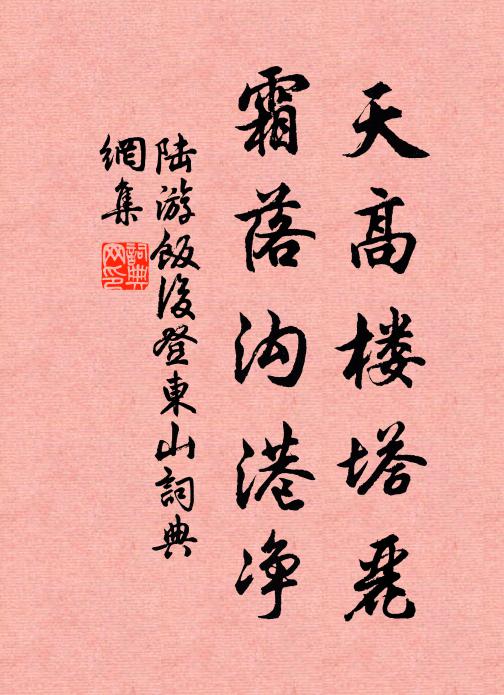 天高楼塔麗
霜落沟港净
陆游飯後登東山詞典
網集
詞典
网印